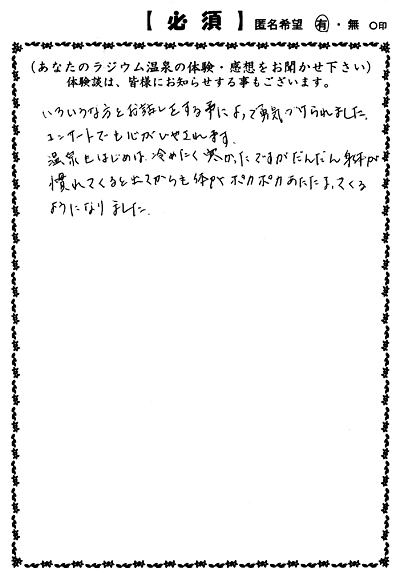 【必須】 匿名希望 有・無 ○印
(あなたのラジウム温泉の体験・感想をお聞かせ下さい)
体験談は、皆様にお知らせする事もございます。
いろいろな方とお話しをする事によって勇気づけられました。
コンサートでも心がいやされます。
温泉もはじめは、冷めたく寒かったですがだんだん身体が
慣れてくると出てからも体がポカポカあたたまってくる
ようになりました。